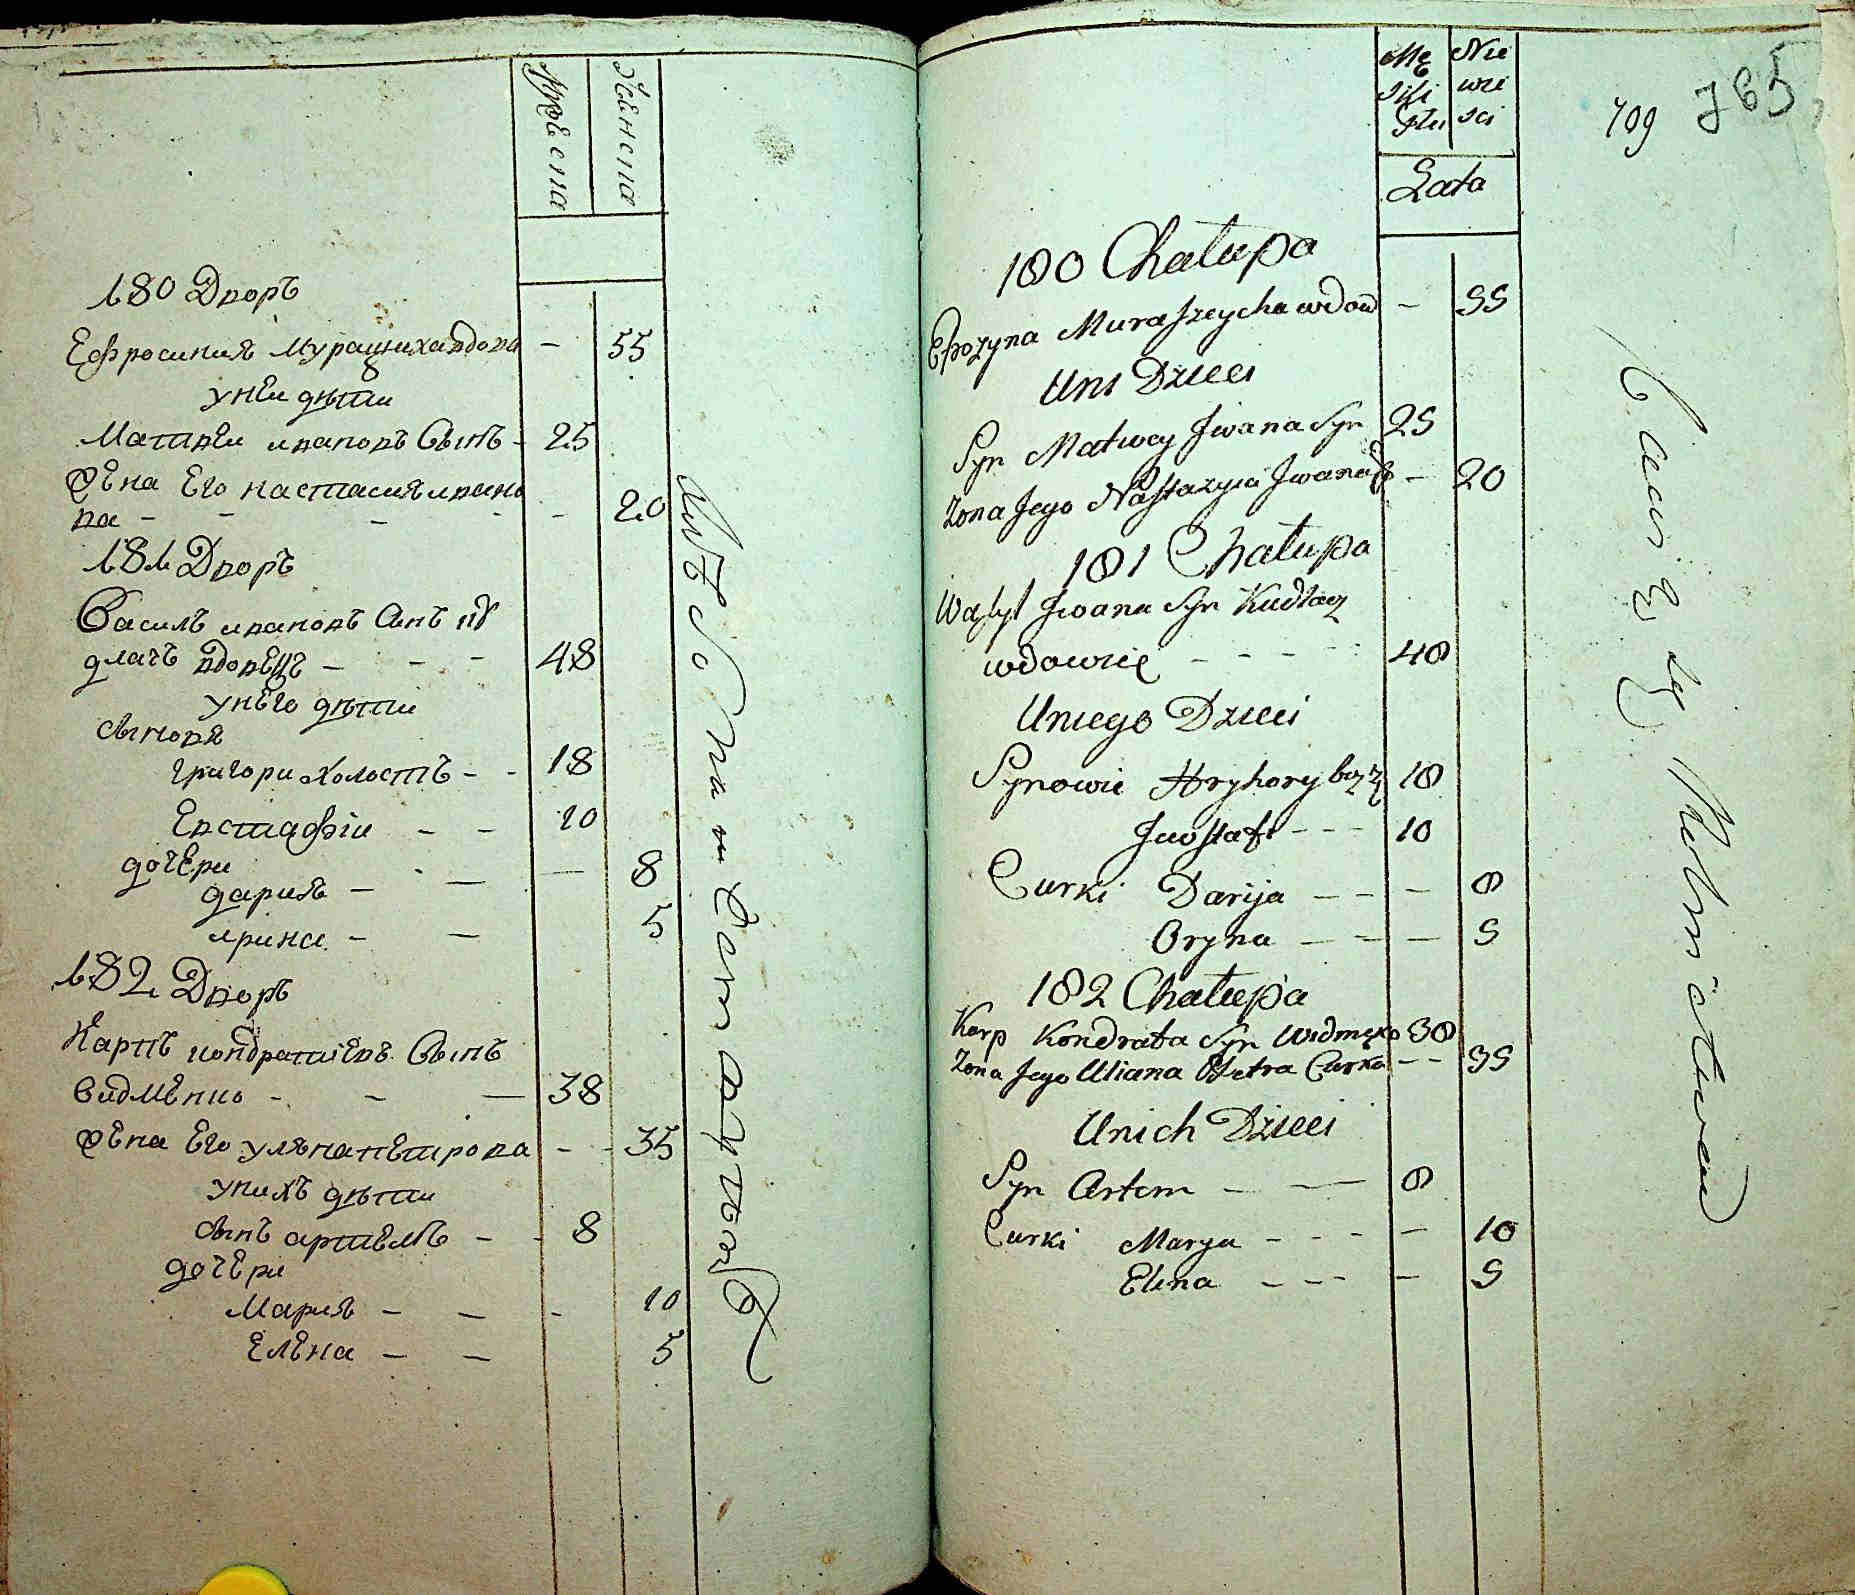 Женска
180 Дворъ
Ефросиния Мурашиха вдова - 55
у неи дѣти
Матвеи ивановъ Сынъ - 25
жена Его настасия ивано
ва - - - - - 20
181 Дворъ
Василъ ивановъ Сынъ ку
длачъ вдовецъ - - - 48
у него дѣти
сыновя
григори холостъ - - 18
Евстафiи - - 10
дочери
дария - - - 8
ирина - - 5
182 Дворъ
Карпъ кондратиевъ Сынъ
видменко - - - 38
жена Его уляна петрова - - 35
у нихъ дѣти
сынъ артемъ - - 8
дочери
Мария - - - 10
Елена - - 5
709
765
Mę Nie
ski wie
Płci sci
Lata
180 Chałupa
Efrozyna Muraszycha wdow - 55
Uni Dzieci
Syn Matwey Jwana Syn 25
Zona Jego Nastazyia Jwana - 20
181 Chałupa
Wasyl Jwana Syn Kudłacz
wdowiec - - - - 48
Uniego Dzieci
Synowie Hryhory bez ż 18
Jwostafi - - - 10
Curki Darija - - - 8
Oryna - - - 5
182 Chałupa
Karp Kondrata Syn Widmęko 38
Zona Jego Uliana Pietra Curka - - 35
Unich Dzieci
Syn Artem - - 8
Curki Marya - - - - 10
Elena - - - - 5